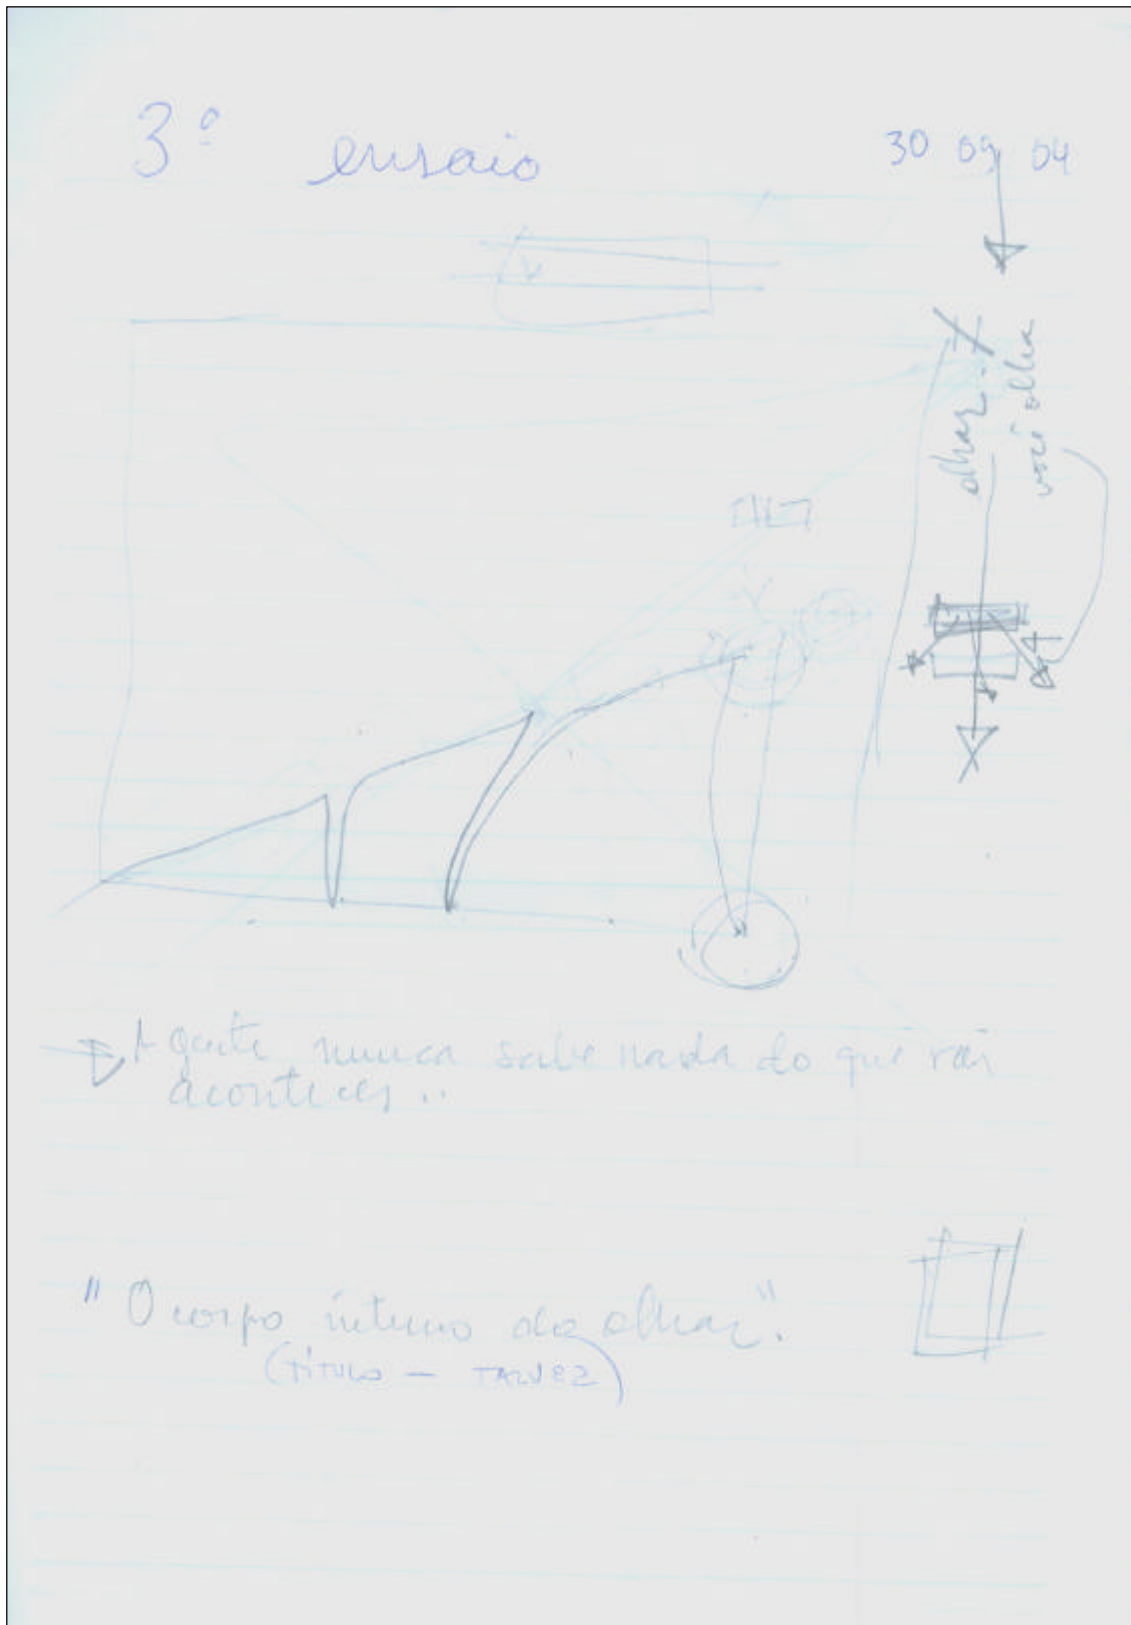 3º ensaio 30 09 04
olhar
você olha
A gente nunca sabe nada do que vai
acontecer..
"O corpo interno do olhar".
(TÍTULO - TALVEZ)